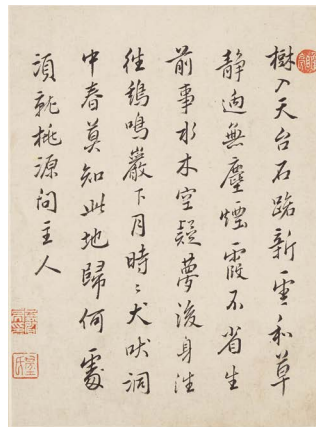 樹入天台石路新雲和草
靜逈無塵煙霞不省生
前事水木空疑夢後身往
往鷄鳴巖下月時〻犬吠洞
中春莫知此地歸何處
須就桃源問主人